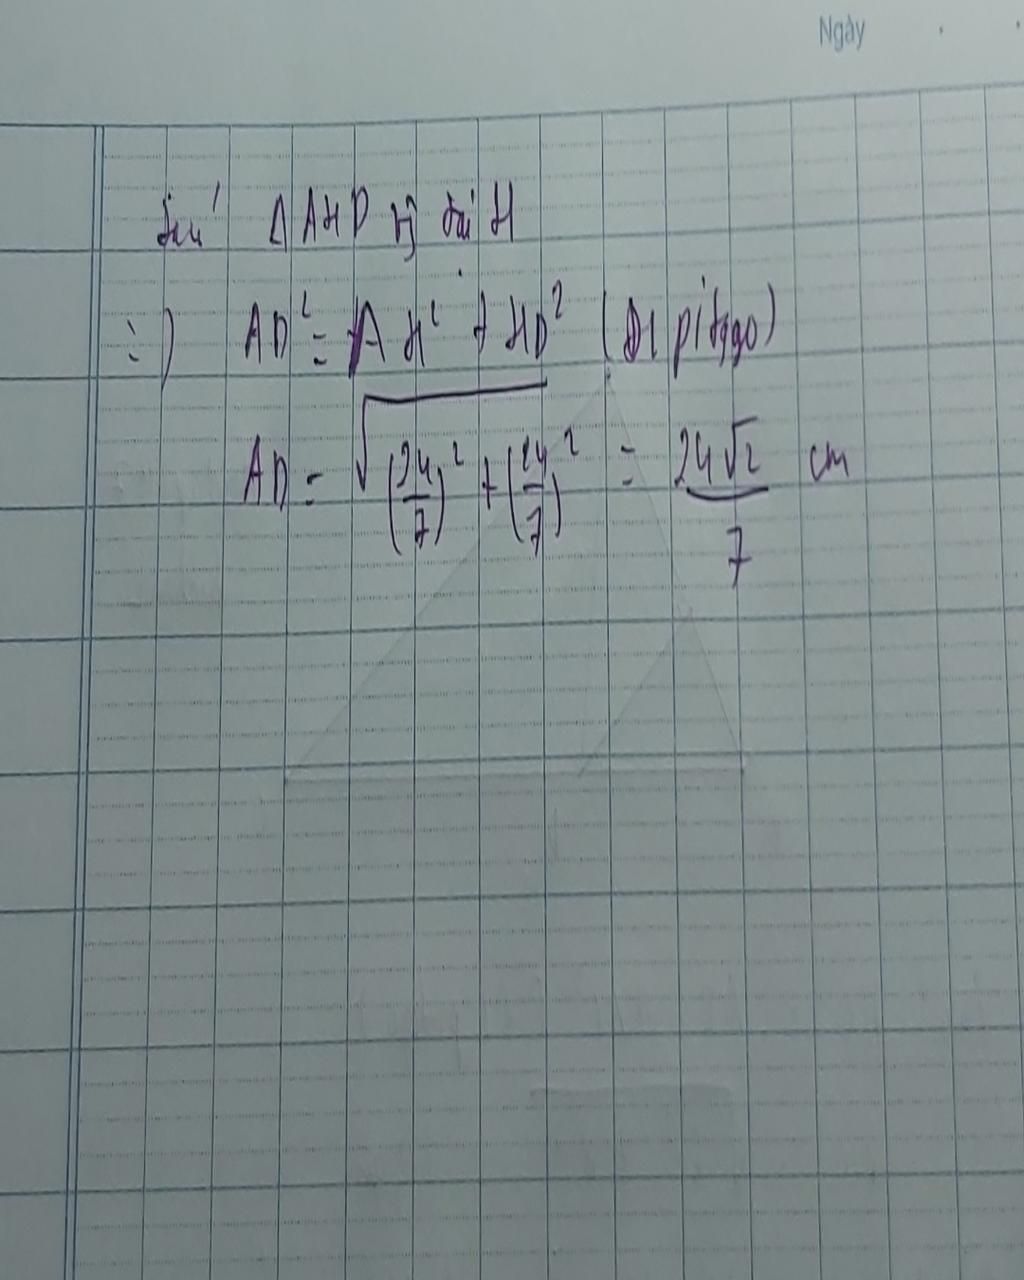 Ngày
Xét Δ AHD vg tại H
=) AD² = AH² + HD² (Đl pitago)
AD = √((24/7)² + (24/7)²) = 24√2/7 cm